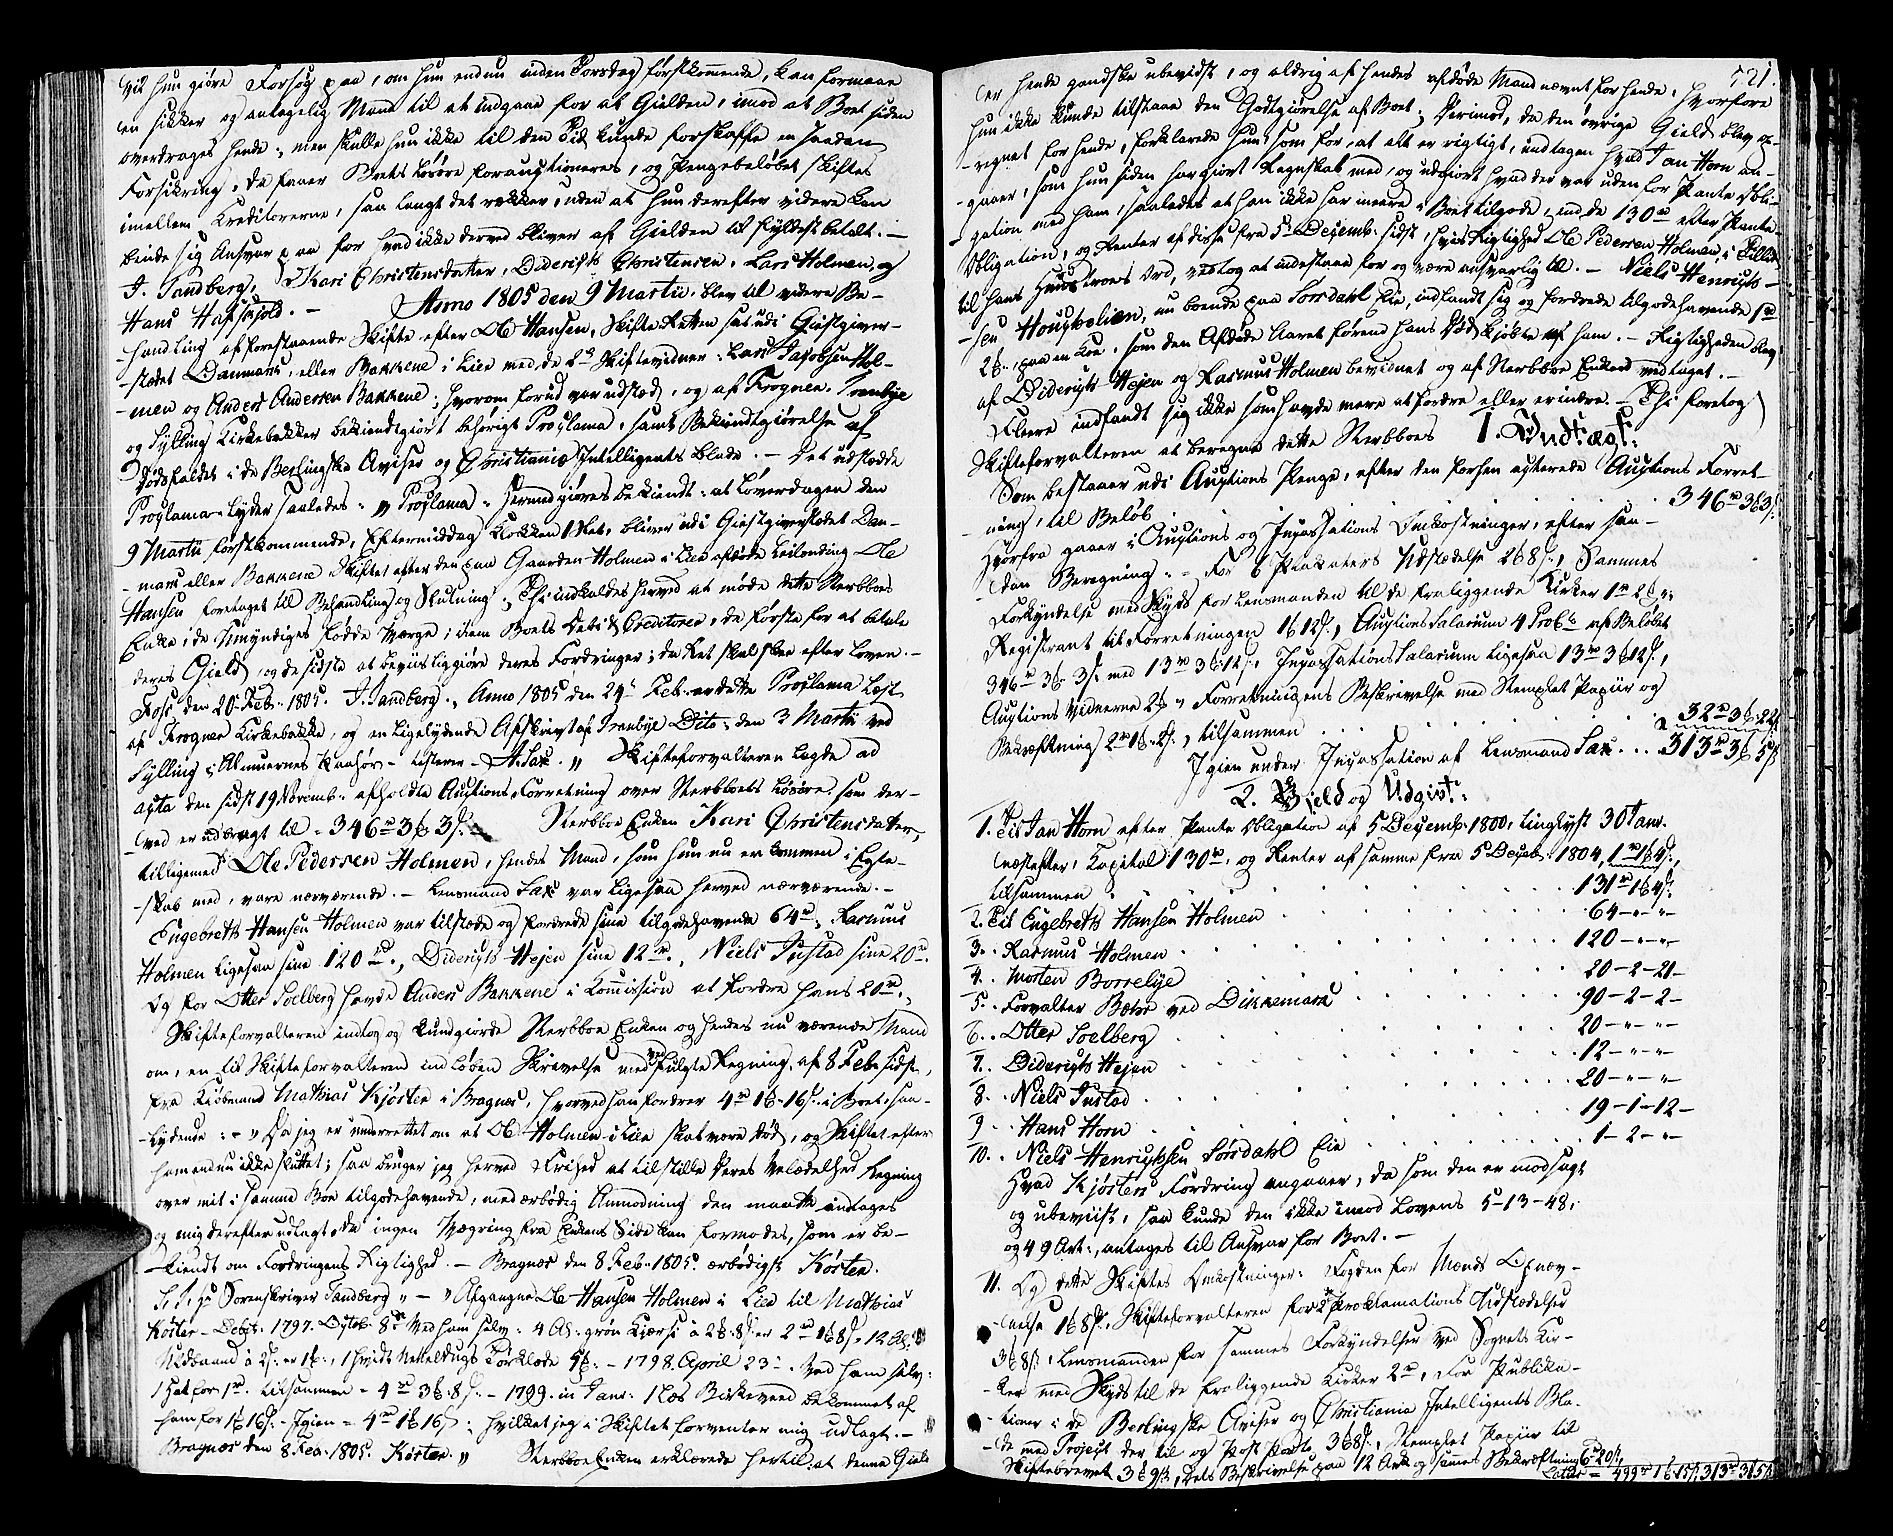 vil hun giøre Forsøg paa, om hun endnu inden Torsdag førstkommende, kan formaae
en sikker og antagelig Mand til at indgaae for at Gielden, imod at Boet siden
overdrages hende; men skulle hun ikke til den Tid kunde forskaffe en saadan
Forsikring, da faaer Boets Løsøre forauctioneres, og Pengebeløbet skiftes
imellem Creditorerne, saa langt det rækker, uden at hun derefter videre kan
binde sig Ansvar paa for hvad ikke derved bliver af Gielden til fyldest betalt. —
J. Sandberg, Kari Christensdatter, Diderich Christensen, Lars Holmen, og
Hans Hafskiold. — Anno 1805 den 9 Martii, blev til videre Be-
-handling af forestaaende Skifte efter Ole Hansen, Skifte Retten sat udi Giestgiver-
-stædet Danmark, eller Bakkene i Lier med de 2de Skiftevidner: Lars Jacobsen Hol-
-men og Anders Andersen Bakkene; hvorom forud var udstæd, og af Frogner, Tranbye
og Sylling Kirkebakker bekiendtgiort behørigt Proclama, samt Bekiendtgiørelse af
Dødsfaldet i de Berlingske Aviser og Christiania Intelligents blade. — Det udstædte
Proclama lyder saaledes: " Proclama: Hermed giøres bekiendt: at Løverdagen den
9 Martii førstkommende, Eftermiddag Klokken 1 Slet, bliver udi Giestgiverstædet Dan-
-mark eller Bakkene Skiftet efter den paa Gaarden Holmen i Lier afdøde Leilending Ole
Hansen foretaget til Behandling og Slutning; Thi indkaldes herved at møde dette Sterbboes
Enke, de Umyndiges fødde Værge; item Boets Debit & Creditorer, de første for at betale
deres Gield, og de sidste at beviisliggiøre deres Fordringer; da Ret skal skee efter Loven. —
Foss den 20 Feb. 1805. J. Sandberg., Anno 1805 den 24 Feb. er dette Proclama læst
af Frogner Kirkebakke, og en ligelydende Afskrivt af Tranbye Dito; den 3 Martii ved
Sylling i Almuernes Paahør — testerer — A. Sax. " Skifteforvalteren lagde ad
acta den sidst 19 Novemb. afholdte Auctions Forretning over Sterbboets Løsøre, som der-
-ved er udbragt til = 346 rd 3 ß 3 s. Sterbboe Enken Kari Christensdatter,
tilligemed Ole Pedersen Holmen, hendes Mand, som hun nu er kommen i Egte-
-skab med, vare nærværende. — Lensmand Sax var ligesaa herved nærværende. —
Engebreth Hansen Holmen var tilstæde og fordrede sine tilgodehavende 64 rd, Rasmus
Holmen ligesaa sine 120 rd., Diderich Hejen sine 12 rd., Niels Justad sine 20 rd.
Og for Otter Soelberg havde Anders Bakkene i Commission at fordre hans 20 rd.,
Skifteforvalteren indtog og kundgiorde Sterbboe Enken og hendes nu værende Mand
om, en til Skifteforvalteren indløben Skrivelse med følgte Regning, af 8 Feb. sidst,
fra Kiøbmand Mathias Kjørter i Bragnæs, hvorved han fordrer 4 rd 1 ß 16 s. i Boet; saa-
-lydende: — " Da jeg er underrettet om at Ole Holmen i Lier skal være død, og Skiftet efter
ham endnu ikke sluttet; saa bruger jeg herved Frihed at tilstille Deres Velædelhed Regning
over mit i samme Boe tilgodehavende, med ærbødig Anmodning den maatte indtages
og mig derefter udlagt, da ingen Vægring fra Enkens Side kan formodes, som er be-
-kiendt om Fordringens Rigtighed. — Bragnæs den 8 Feb. 1805. ærbødigst Kørter.
Hr. Sorenskriver Sandberg " — " Afgangne Ole Hansen Holmen i Lier til Mathias
Kørter — Debet: 1797. Octob. 8de Ved ham selv: 4 Al: grøn Kjærsi à 2 ß 8 s. er 2 rd 1 ß 8 s, 12 Al:
Uldbaand à 2 s. er 1 ß., 1 hvidt Netteldugs Tørklæde 5 ß. — 1798. April 23. Ved ham selv:
1 Hat for 1 rd. tilsammen = 4 rd 3 ß 8 s. — 1799. in Janr: 1 Læs Birkeveed bekommet af
ham for 1 ß 16 s. — Igien = 4 rd 1 ß 16 s; hvilket jeg i Skiftet forventer mig udlagt. —
Bragnæs den 8 Feb. 1805. Kørter " Sterbboe Enken erklærede hertil: at denne Gield
721.
er hende gandske ubevidst, og aldrig af hendes afdøde Mand nævnt for hende, hvorfore
hun ikke kunde tilstaae den Godtgiørelse af Boet; Derimod, da den øvrige Gield blev op-
-regnet for hende, forklarede hun som før, at alt er rigtigt, undtagen hvad Jan Horn an-
-gaaer, som hun siden har giort Regnskab med, og udgiort hvad der var uden for Pante Obli-
-gation med ham, saaledes at han ikke har meere i Boet tilgode end de 130 rd efter Pante-
Obligation, og Renter af disse fra 5te Decemb. sidst, hvis Rigtighed Ole Pedersen Holmen, i Tillid
til hans Hustroes Ord, vedtog at indestaae for og være ansvarlig til. — Niels Henrich-
-sen Houskelien, nu boende paa Sørsdahl Eie, indfandt sig og fordrede tilgodehavende 1 rd
2 ß., paa en Koe, som den Afdøde Aaret førend hans Død kjøbte af ham. — Rigtigheden blev
af Diderich Hejen og Rasmus Holmen bevidnet og af Sterbboe Enken vedtaget. —
Fleere indfandt sig ikke som havde mere at fordre eller erindre. — Thi foretog
Skifteforvalteren at beregne dette Sterbboes 1. Indtægt:
Som bestaaer udi Auctions Penge, efter den forhen acterede Auctions Forret-
-ning, til Beløb . . . 346 rd 3 ß 3 s.
Hvorfra gaaer i Auctions og Incassations Omkostninger, efter saa-
-dan Beregning: — For 6 Placaters Udstædelse 2 ß 8 s., Sammes
Forkyndelse med Skyds for Lensmanden til de fraliggende Kirker 1 rd 2 ß "
Registrant til Forretningen 1 ß 12 s., Auctions Salarium 4 Proc. af Beløbet
346 rd 3 ß 3 s. med 13 rd 3 ß 12 s., Incassations Salarium ligesaa 13 rd 3 ß 12 s,
Auctions Vidnerne 2 ß " Forretningens Beskrivelse med Stemplet Papiir og
Bekræftning 2 rd 1 ß 2 s., tilsammen . . . 32 rd 3 ß 22 s.
Igien under Incassation af Lensmand Sax . . . 313 rd 3 ß 5 s
2. Gield og Udgivt:
1. Til Jan Horn efter Pante Obligation af 5 Decemb. 1800, tinglyst 30 Janr.
næstefter, Capital 130 rd, og Renter af samme fra 5 Decb. 1804, 1 rd 1 ß 4 s.,
tilsammen . . . 131 rd 1 ß 4 s.
2. Til Engebreth Hansen Holmen . . . 64 — " — "
3. . Rasmus Holmen . . . 120 — " — "
4. . Morten Borrelye . . . 20 — 2 — 21 —
5. . Forvalter Bæhr ved Dikkemark . . . 90 — 2 — 2 —
6. . Otter Soelberg . . . 20 — " — "
7. . Diderich Hejen . . . 12 — " — "
8. . Niels Justad . . . 20 — " — "
9. . Hans Horn . . . 19 — 1 — 12 —
10. . Niels Henrichsen Sørsdahl Eie . . . 1 — 2 — " —
Hvad Kjørters Fordring angaaer, da som den er modsagt
og ubeviist, saa kunde den ikke imod Lovens 5 — 13 — 48,
og 49 Art:, antages til Ansvar for Boet. —
11. Og dette Skiftes Omkostninger: Fogden for Mænds Opnæv-
-nelse 1 ß 8 s., Skifteforvalteren for 2de Proklamations Udstædelser
3 ß 8 s., Lensmanden for Sammes Forkyndelser ved Sognets Kir-
-ker med Skyds til de fraliggende Kirker 2 rd, For Publika-
-tioner i de Berlingske Aviser og Christiania Intelligents Bla-
-de med Project der til og Post Porto 3 ß 8 s., Stemplet Papiir til
Skiftebrevet 3 ß 9 s., Dets Beskrivelse paa 12 Ark og sammes Bekræftning 6 rd 20 s.,
Latus = 499 rd 1 ß 15 s, 313 rd 3 ß 5 s